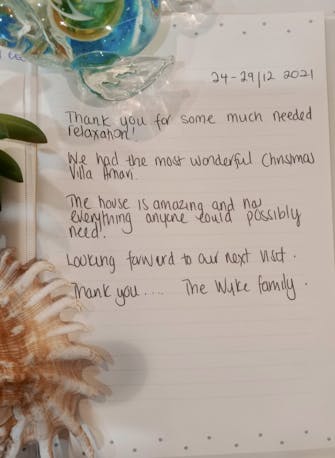 24-29/12 2021
Thank you for some much needed
relaxation!
We had the most wonderful Christmas
Villa Aman.
The house is amazing and has
everything anyone could possibly
need.
Looking forward to our next visit.
Thank you.... The Wyke family.